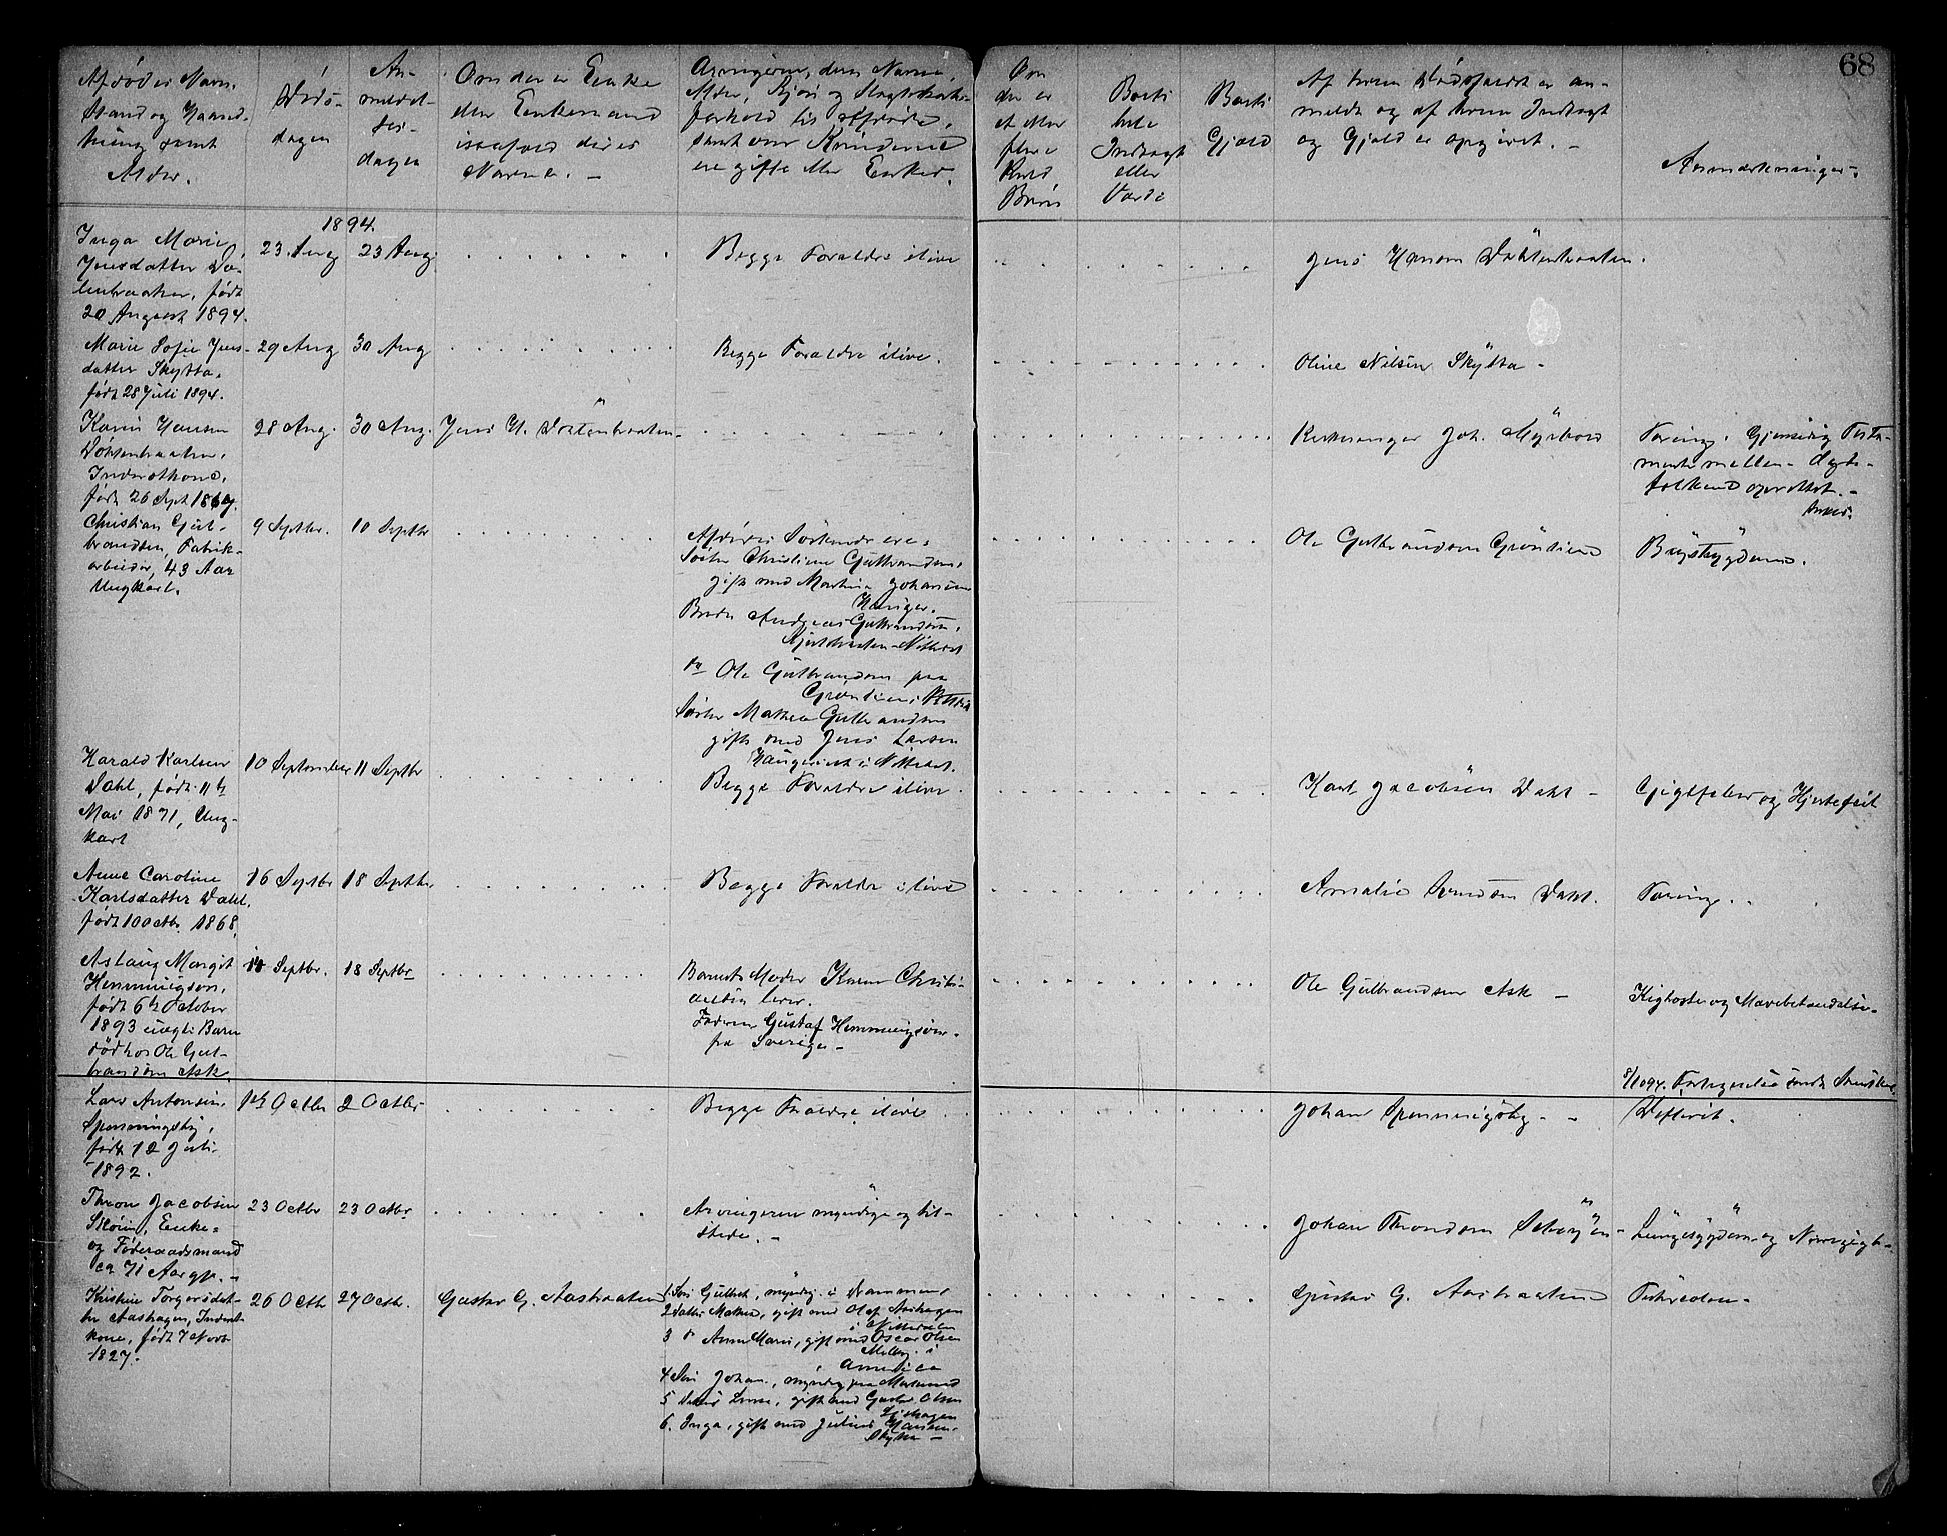 68
Afdødes Navn,
Stand og Haand-
tering samt
Alder.
Døds-
dagen
An-
meldel-
ses-
dagen
Om der er Enke
eller Enkemand
isaafald deres
Navne. -
Arvingerne, deres Navne,
Alder, Kjøn og Slægtskabs-
forhold til Afdøde,
samt om Kvinderne
ere gifte eller Enker.
Om
der er
et eller
flere
Kuld
Børn
Boets
hele
Indtægt
eller
Værdi
Boets
Gjæld
Af hvem Dødsfaldet er an-
meldt og af hvem Indtægt
og Gjæld er opgivet. -
Anmærkninger.
1894.
Inga Marie
Jensdatter
født
20 August 1894.
23 Aug
23 Aug.
Begge Forældre ilive
Jens Hansen
Marie Sofie Jens-
datter Skytta,
født 28 Juli 1894.
29 Aug
30 Aug
Begge Forældre ilive.
Oline Nilsen Skytta -
Karen Hansen
Inderstkone,
født 26 Sept 1869.
28 Aug.
30 Aug.
Jens H.
Kirkesanger Joh.
Tæring. Gjensidig Testa-
mente mellem Ægte-
folkene oprettet. -
Christian Gul-
brandsen, Fabrik-
arbeider, 43 Aar
Ungkarl.
9 Septbr.
10 Septbr
Afdødes Søskende ere:
Søster Christine Gulbrandsen,
gift med Martin Johansen
Hauger.
Broder Andreas Gulbrandsen,
do Ole Gulbrandsen paa
Søster Mathea Gulbrandsen
gift med Jens Larsen
Ole Gulbrandsen
Brystsygdom.
Harald Karlsen
Dahl, født 11te
Mai 1871, Ung-
karl
10 September
11 Septbr
Begge Forældre ilive.
Karl Jacobsen Dahl -
Gigtfeber og Hjertefeil
Anne Caroline
Karlsdatter Dahl,
født 10 Octbr. 1868.
16 Septbr
18 Septbr.
Begge Forældre ilive
Amalie Svendsen Dahl.
Tæring.
Aslaug Margit
Henningsen,
født 6te October
1893 uægte Barn
død hos Ole Gul-
brandsen Ask.
Septbr.
18 Septbr
Barnets Moder Karen Christi-
lever.
Faderen Gustaf Henningsen
fra Sverige -
Ole Gulbrandsen Ask -
Kighoste og
8/10 94. Fortegnelse sendt
Lars Antonsen
Spenningsby,
født 12 Juli
1892.
1ste Octbr
2 Octbr
Begge Forældre ilive
Johan Spenningsby. -
Difterit.
Thron Jacobsen
Enke-
og Føderaadsmand
ca 71 Aar gl. -
23 Octbr
23 Octbr
Arvingerne myndige og til-
stede. -
Johan Thronsen
Lungesygdom og
Kristine Torgersdat-
ter Aashagen, Inderst-
kone, født 7 Novbr
1827.
26 Octb
27 Octb.
Gustav G. Aasbraaten
1. Søn Gulbrand, myndig i Drammen,
2 Datter Mathea, gift med Olaf Aashagen
i Nittedalen
3 do Anne Marie, gift med Oscar Olsen
i
America
4 Søn Johan, myndig paa
5 Datter gift med Gustav Olsen
6. Inga, gift med Julius Hansen
Skytta -
Gustav G. Aasbraaten